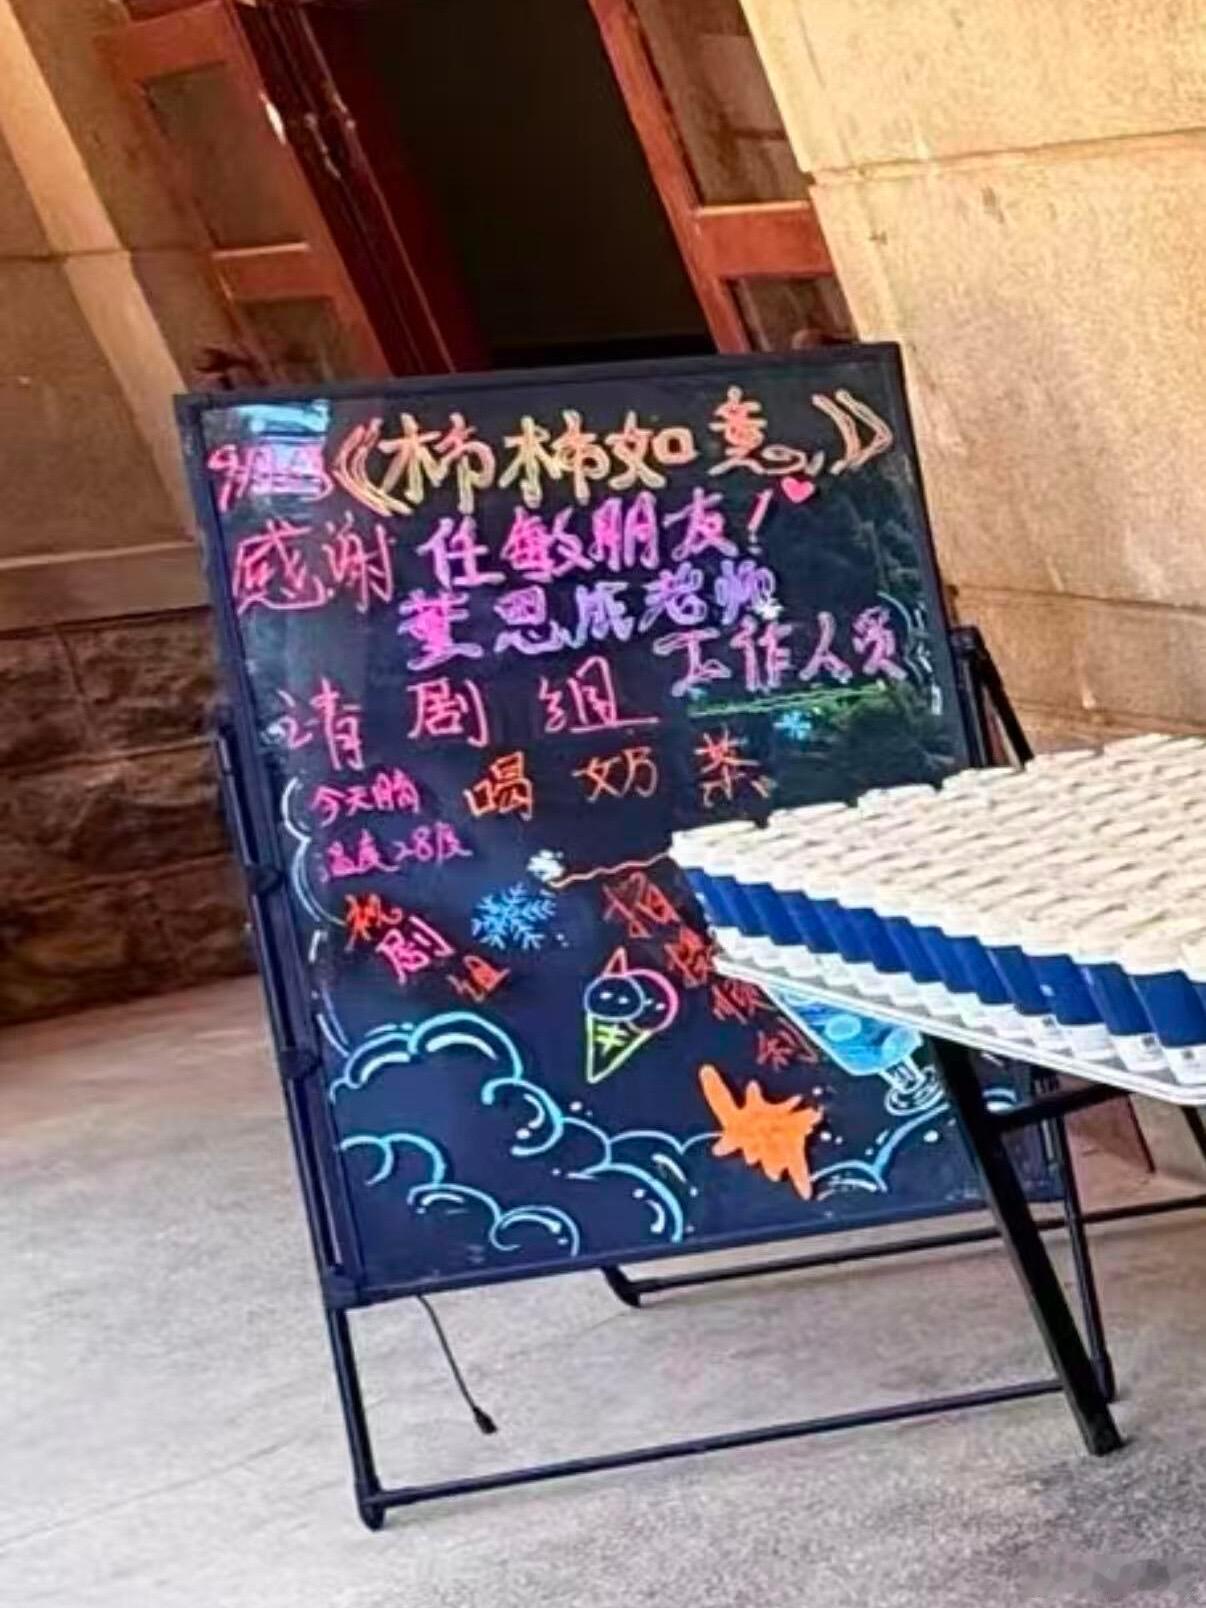 《柿柿如意》
感谢 任敏朋友！
董思成老师
工作人员
请 剧 组
喝 奶 茶
今天
温度28度
祝
剧
组
拍
摄
顺
利